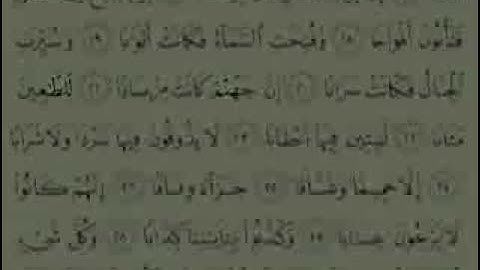 فَتَأْتُونَ أَفْوَاجًا ١٨ وَفُتِحَتِ ٱلسَّمَآءُ فَكَانَتْ أَبْوَٰبًا ١٩ وَسُيِّرَتِ
ٱلْجِبَالُ فَكَانَتْ سَرَابًا ٢٠ إِنَّ جَهَنَّمَ كَانَتْ مِرْصَادًا ٢١ لِّلطَّٰغِينَ
مَـَٔابًا ٢٢ لَّٰبِثِينَ فِيهَآ أَحْقَابًا ٢٣ لَّا يَذُوقُونَ فِيهَا بَرْدًا وَلَا شَرَابًا
٢٤ إِلَّا حَمِيمًا وَغَسَّاقًا ٢٥ جَزَآءً وِفَاقًا ٢٦ إِنَّهُمْ كَانُوا۟
لَا يَرْجُونَ حِسَابًا ٢٧ وَكَذَّبُوا۟ بِـَٔايَٰتِنَا كِذَّابًا ٢٨ وَكُلَّ شَىْءٍ